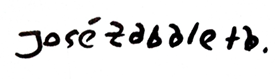 José Zabaletb.